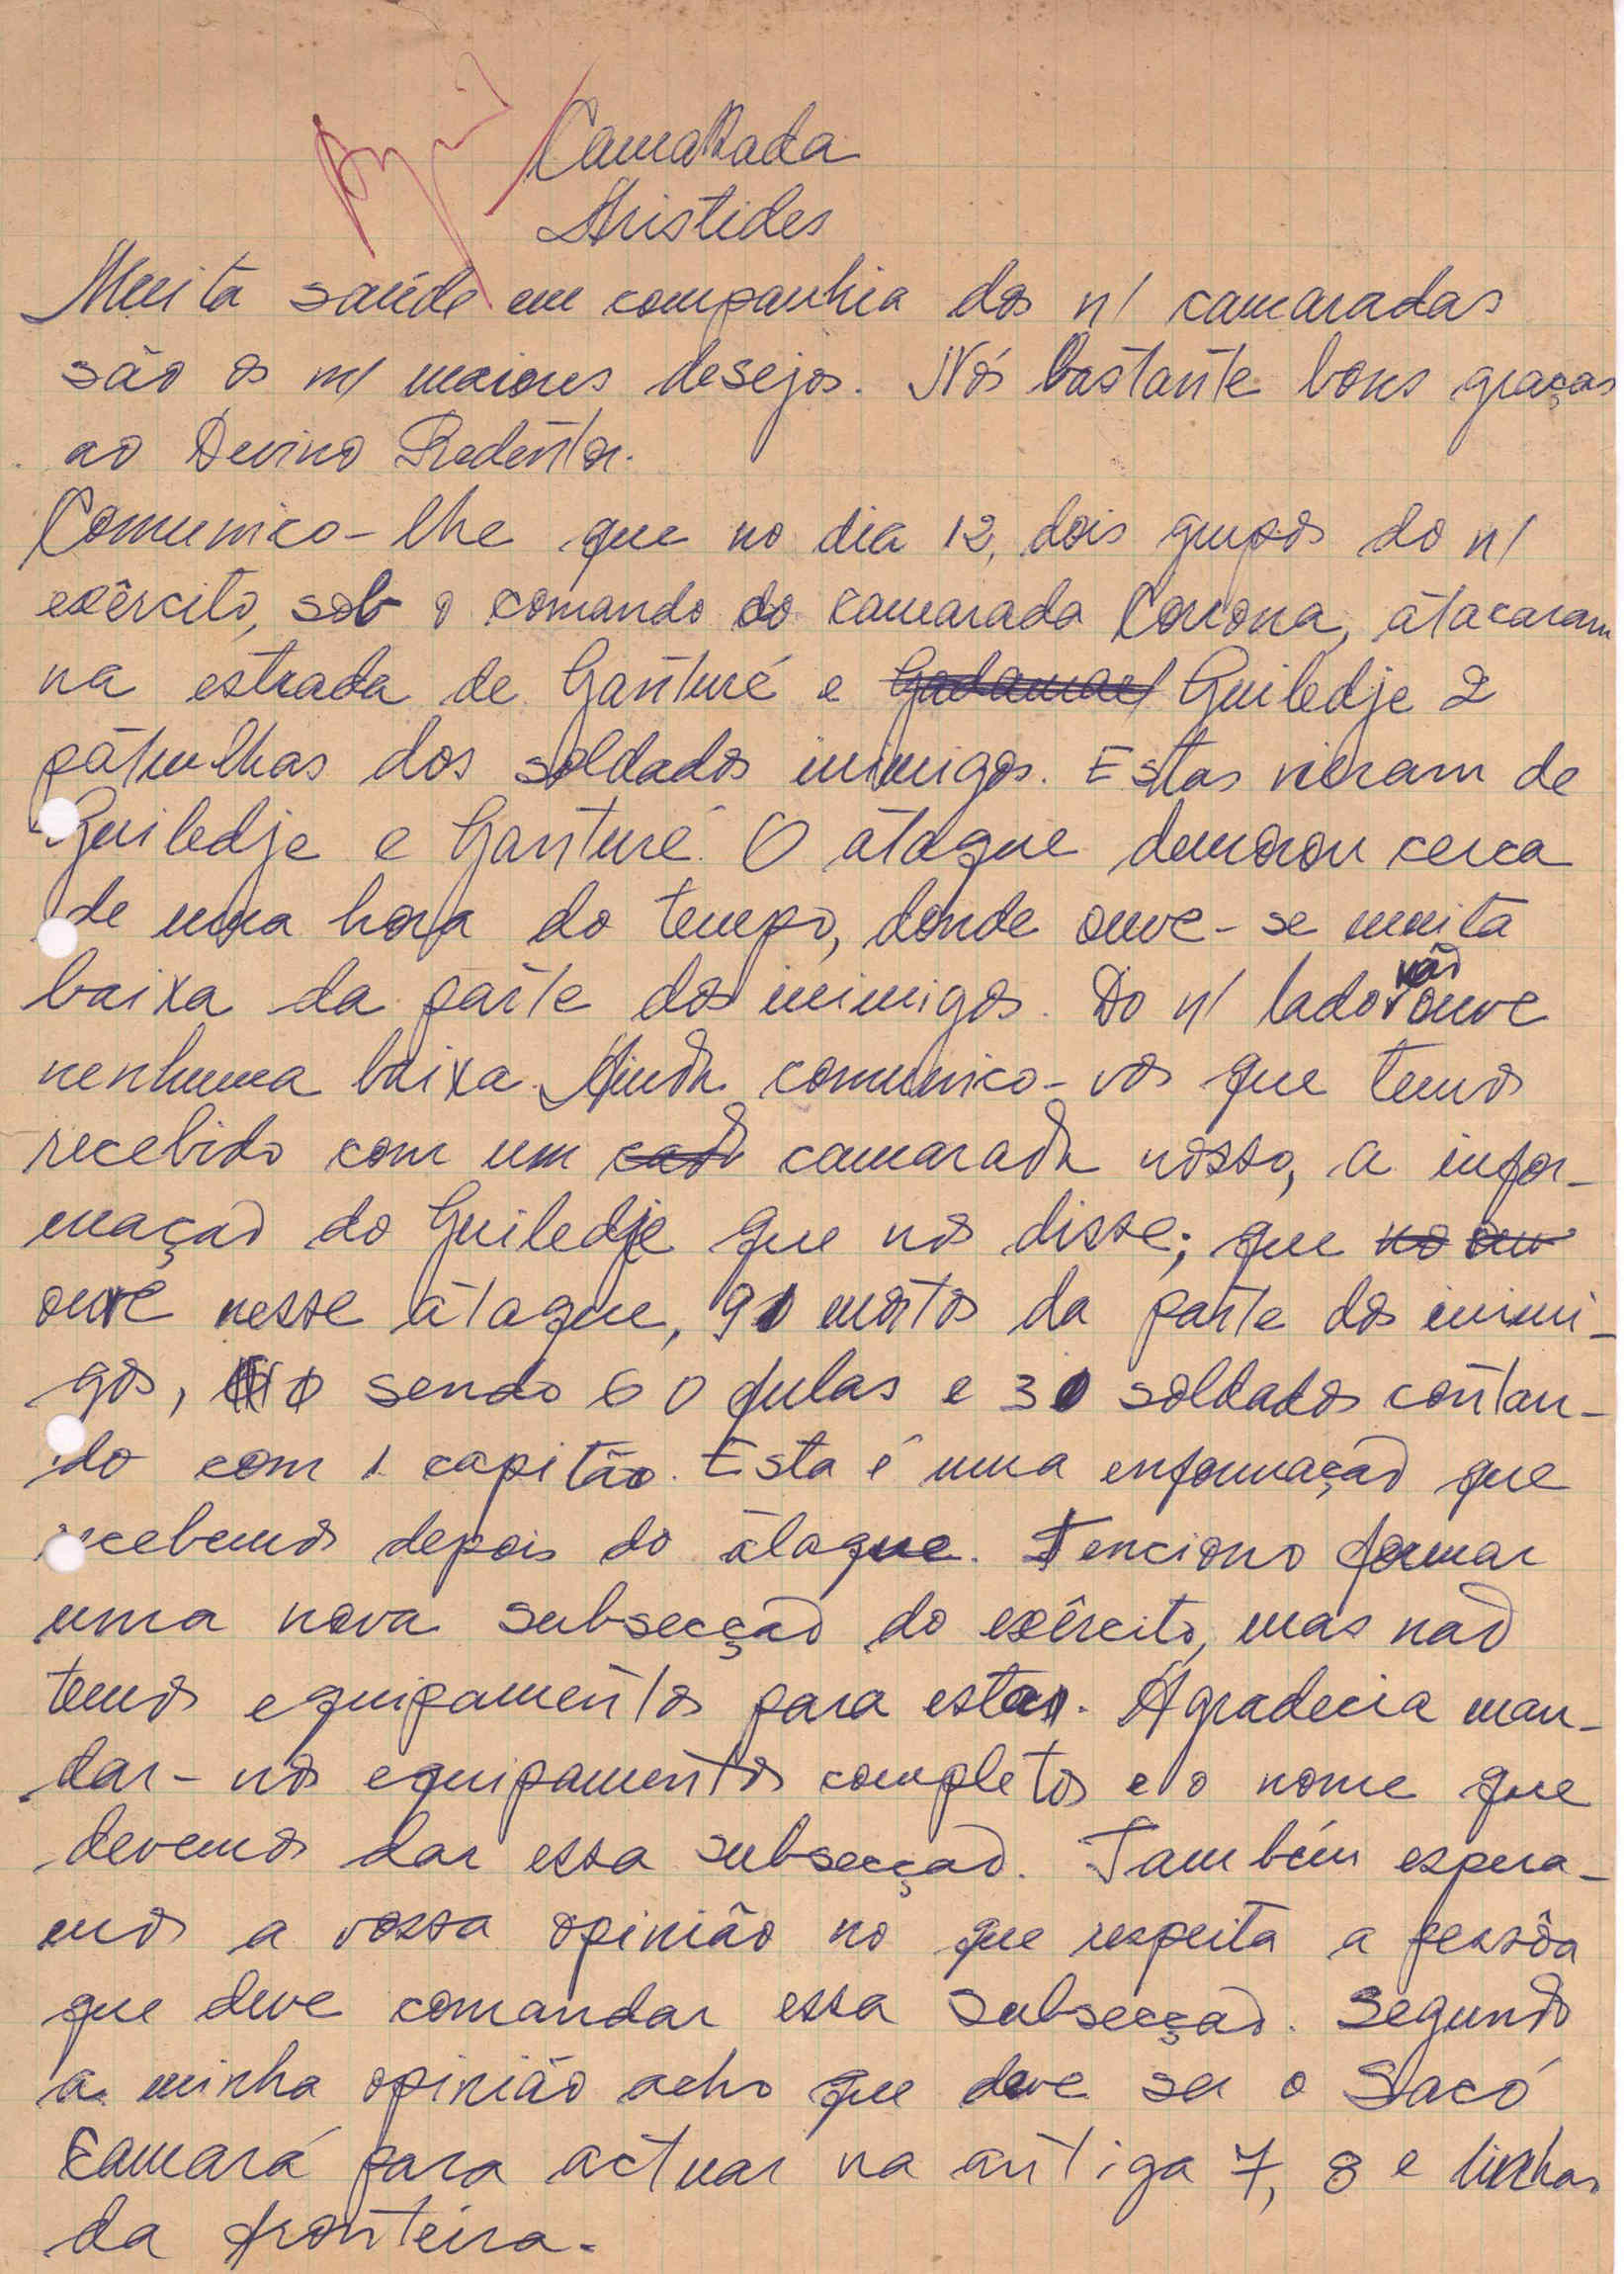 CamaRada
Aristides
Muita saúde em companhia dos n/ camaradas
são os m/ maiores desejos. Nós bastante bons graças
ao Devino Redentor.
Comunico-lhe que no dia 12, dois grupos do n/
exêrcito, sob o comando do camarada Corona, atacaram
na estrada de Ganturé e Gadamael Guiledje 2
patrulhas dos soldados inimigos. Estas vieram de
Guiledje e Ganturé. O ataque demorou cerca
de uma hora do tempo, donde ouve-se muita
baixa da parte dos inimigos. Do n/ lado não ouve
nenhuma baixa. Ainda comunico-vos que temos
recebido com um cada camarada nosso, a infor-
maçaõ do Guiledje que nos disse; que no ou
ouve nesse ataque, 90 mortos da parte dos inimi-
gos, sendo 60 fulas e 30 soldados contan-
do com 1 capitão. Esta é uma enformaçaõ que
recebemos depois do ataque. Tenciono formar
uma nova subsecçaõ do exêrcito, mas naõ
temos equipamentos para estas. Agradecia man-
dar-nos equipamentos completos e o nome que
devemos dar essa subsecçaõ. Também espera-
mos a vossa opinião no que respeita a pessôa
que deve comandar essa subsecçaõ. Segundo
a minha opinião acho que deve ser o Sacó
Camará para actuar na antiga 7, 8 e linhas
da fronteira.